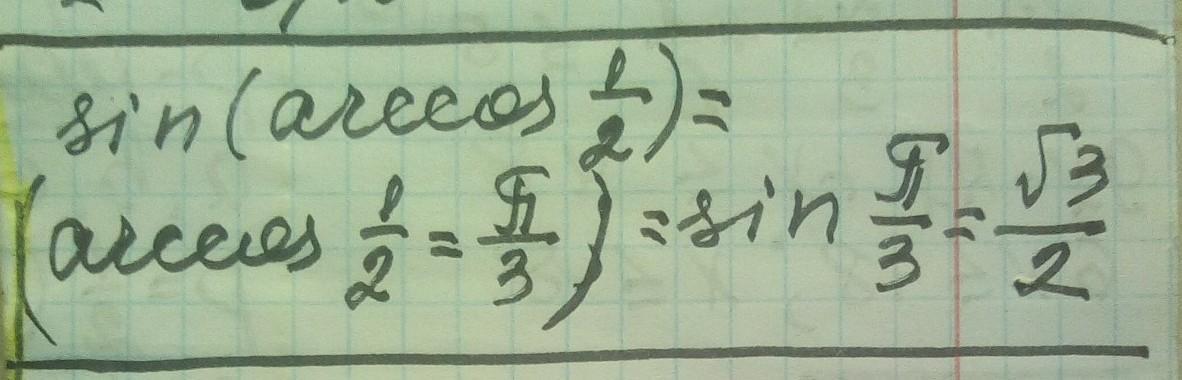 sin(arccos 1/2)=
(arccos 1/2 = π/3) = sin π/3 = √3/2